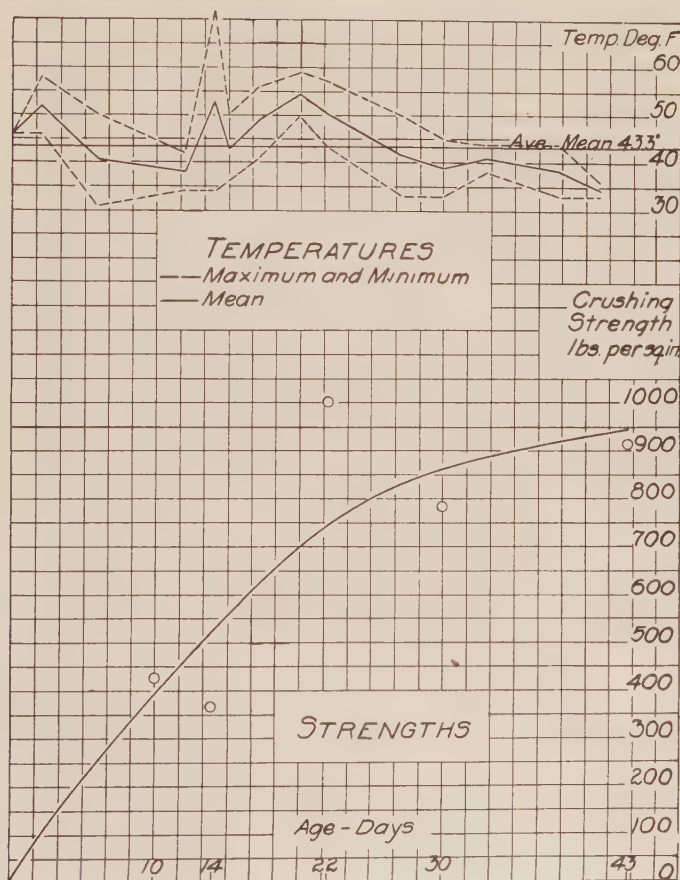 Temp. Deg. F
60
50
Ave. Mean 43.3°
40
30
TEMPERATURES
Maximum and Minimum
Mean
Crushing
Strength
lbs. per sq in.
1000
900
800
700
600
500
400
STRENGTHS
300
200
Age-Days
100
10 14 22 30 43 0